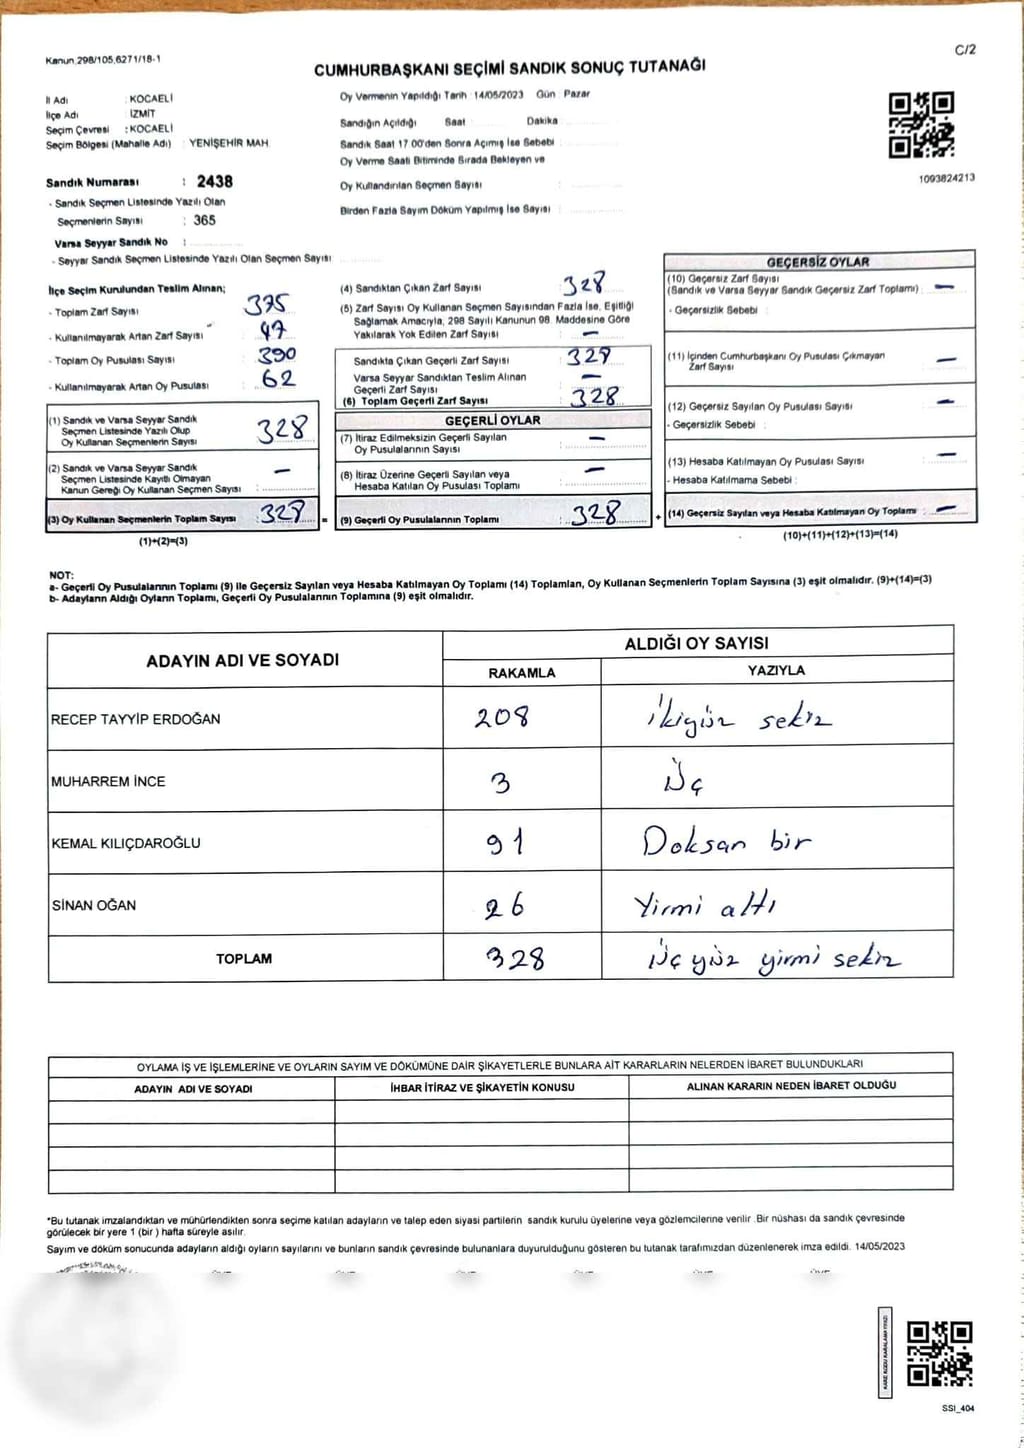 Kanun 298/105,6271/18-1
C/2
CUMHURBAŞKANI SEÇİMİ SANDIK SONUÇ TUTANAĞI
İl Adı : KOCAELİ
İlçe Adı : İZMİT
Seçim Çevresi : KOCAELİ
Seçim Bölgesi (Mahalle Adı) : YENİŞEHİR MAH
Sandık Numarası : 2438
- Sandık Seçmen Listesinde Yazılı Olan
Seçmenlerin Sayısı : 365
Varsa Seyyar Sandık No :
- Seyyar Sandık Seçmen Listesinde Yazılı Olan Seçmen Sayısı
Oy Vermenin Yapıldığı Tarih : 14/05/2023 Gün : Pazar
Sandığın Açıldığı Saat Dakika
Sandık Saat 17 00'den Sonra Açımış İse Sebebi :
Oy Verme Saati Bitiminde Sırada Bekleyen ve
Oy Kullandırılan Seçmen Sayısı :
Birden Fazla Sayım Döküm Yapılmış İse Sayısı :
1093824213
İlçe Seçim Kurulundan Teslim Alınan;
- Toplam Zarf Sayısı : 375
- Kullanılmayarak Artan Zarf Sayısı : 47
- Toplam Oy Pusulası Sayısı : 390
- Kullanılmayarak Artan Oy Pusulası : 62
(1) Sandık ve Varsa Seyyar Sandık
Seçmen Listesinde Yazılı Olup
Oy Kullanan Seçmenlerin Sayısı 328
(2) Sandık ve Varsa Seyyar Sandık
Seçmen Listesinde Kayıtlı Olmayan
Kanun Gereği Oy Kullanan Seçmen Sayısı : –
(3) Oy Kullanan Seçmenlerin Toplam Sayısı : 328 =
(1)+(2)=(3)
(4) Sandıktan Çıkan Zarf Sayısı : 328
(5) Zarf Sayısı Oy Kullanan Seçmen Sayısından Fazla İse, Eşitliği
Sağlamak Amacıyla, 298 Sayılı Kanunun 98. Maddesine Göre
Yakılarak Yok Edilen Zarf Sayısı : –
Sandıkta Çıkan Geçerli Zarf Sayısı : 328
Varsa Seyyar Sandıktan Teslim Alınan
Geçerli Zarf Sayısı : –
(6) Toplam Geçerli Zarf Sayısı : 328
GEÇERLİ OYLAR
(7) İtiraz Edilmeksizin Geçerli Sayılan
Oy Pusulalarının Sayısı : –
(8) İtiraz Üzerine Geçerli Sayılan veya
Hesaba Katılan Oy Pusulası Toplamı : –
(9) Geçerli Oy Pusulalarının Toplamı : 328 +
GEÇERSİZ OYLAR
(10) Geçersiz Zarf Sayısı
(Sandık ve Varsa Seyyar Sandık Geçersiz Zarf Toplamı) : –
- Geçersizlik Sebebi :
(11) İçinden Cumhurbaşkanı Oy Pusulası Çıkmayan
Zarf Sayısı : –
(12) Geçersiz Sayılan Oy Pusulası Sayısı : –
- Geçersizlik Sebebi :
(13) Hesaba Katılmayan Oy Pusulası Sayısı : –
- Hesaba Katılmama Sebebi :
(14) Geçersiz Sayılan veya Hesaba Katılmayan Oy Toplamı : –
(10)+(11)+(12)+(13)=(14)
NOT:
a- Geçerli Oy Pusulalarının Toplamı (9) ile Geçersiz Sayılan veya Hesaba Katılmayan Oy Toplamı (14) Toplamları, Oy Kullanan Seçmenlerin Toplam Sayısına (3) eşit olmalıdır. (9)+(14)=(3)
b- Adayların Aldığı Oyların Toplamı, Geçerli Oy Pusulalarının Toplamına (9) eşit olmalıdır.
ADAYIN ADI VE SOYADI
ALDIĞI OY SAYISI
RAKAMLA YAZIYLA
RECEP TAYYİP ERDOĞAN 208 ikiyüz sekiz
MUHARREM İNCE 3 Üç
KEMAL KILIÇDAROĞLU 91 Doksan bir
SİNAN OĞAN 26 Yirmi altı
TOPLAM 328 Üç yüz yirmi sekiz
OYLAMA İŞ VE İŞLEMLERİNE VE OYLARIN SAYIM VE DÖKÜMÜNE DAİR ŞİKAYETLERLE BUNLARA AİT KARARLARIN NELERDEN İBARET BULUNDUKLARI
ADAYIN ADI VE SOYADI İHBAR İTİRAZ VE ŞİKAYETİN KONUSU ALINAN KARARIN NEDEN İBARET OLDUĞU
*Bu tutanak imzalandıktan ve mühürlendikten sonra seçime katılan adayların ve talep eden siyasi partilerin sandık kurulu üyelerine veya gözlemcilerine verilir. Bir nüshası da sandık çevresinde
görülecek bir yere 1 (bir ) hafta süreyle asılır.
Sayım ve döküm sonucunda adayların aldığı oyların sayılarını ve bunların sandık çevresinde bulunanlara duyurulduğunu gösteren bu tutanak tarafımızdan düzenlenerek imza edildi. 14/05/2023
KARE KODU KARALAMAYINIZ!
SSI_404